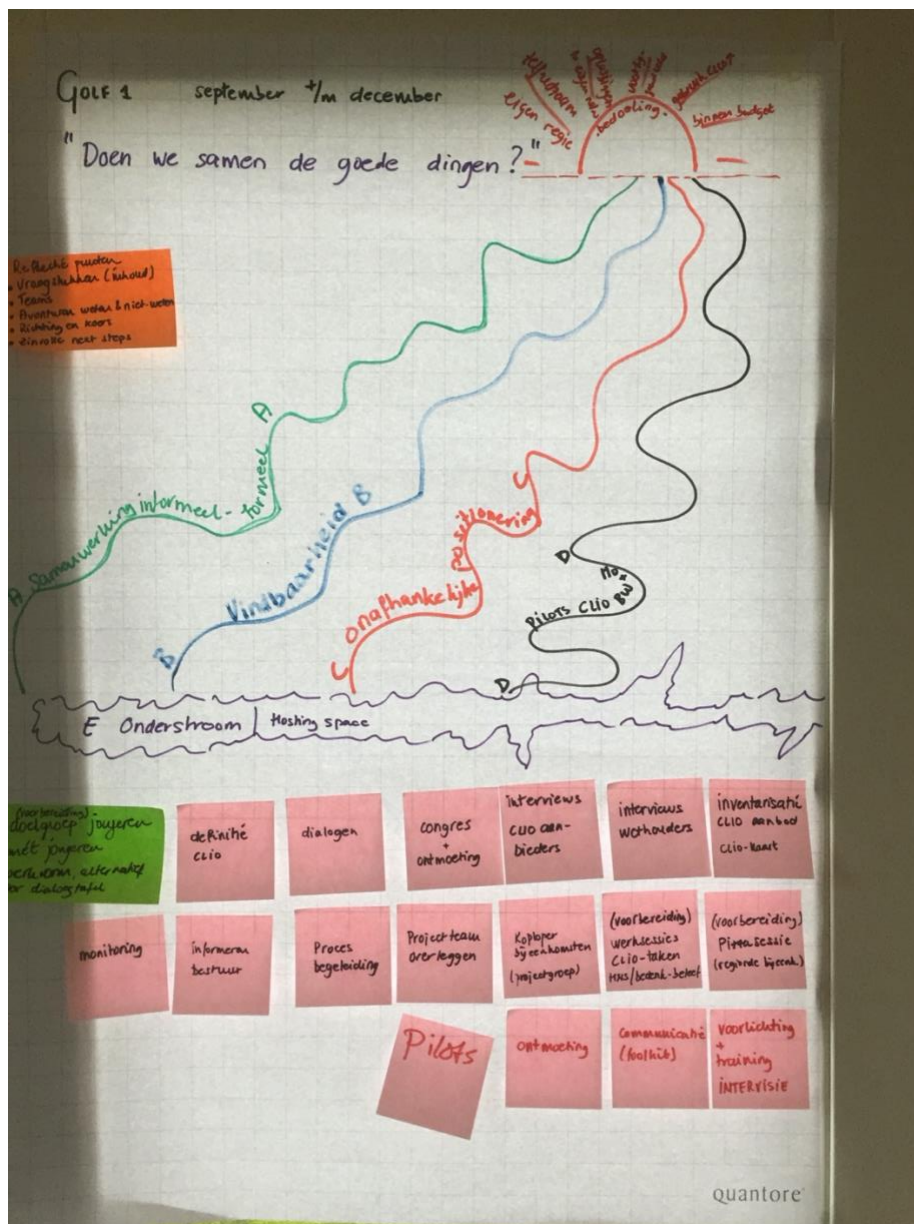 GOLF 1 september t/m december
"Doen we samen de goede dingen?"
eigen regie
bedoeling
binnen budget
Reflectie punten
• Vraagstukken (inhoud)
• Teams
• Avontuur weten & niet-weten
• Richting en koers
• zinvolle next steps
A Samenwerking informeel - formeel A
B Vindbaarheid B
C onafhankelijke positionering C
D Pilots CLIO BW D
E Onderstroom | Hosting space
(voorbereiding)
doelgroep jongeren
mét jongeren
werkvorm, alternatief
dialoogtafel
definitie
CLIO
dialogen
congres
+
ontmoeting
interviews
CLIO aan-
bieders
interviews
wethouders
inventarisatie
CLIO aanbod
CLIO-kaart
monitoring
informeren
bestuur
Proces
begeleiding
Projectteam
overleggen
Koploper
bijeenkomsten
(projectgroep)
(voorbereiding)
werksessies
CLIO-taken
(voorbereiding)
Pizzasessie
(regionale bijeenk.)
Pilots
ontmoeting
Communicatie
(toolkit)
voorlichting
+
training
INTERVISIE
quantore